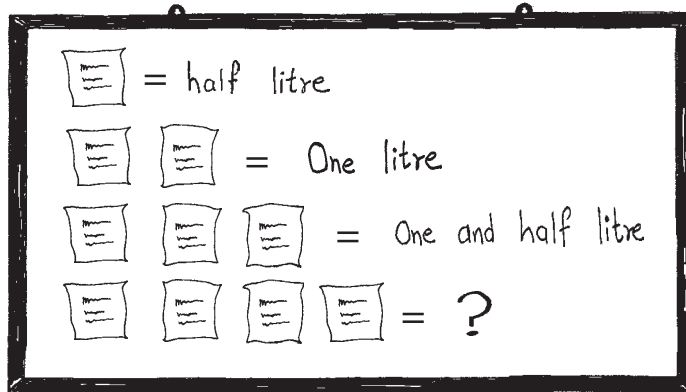 = half litre
= One litre
= One and half litre
= ?